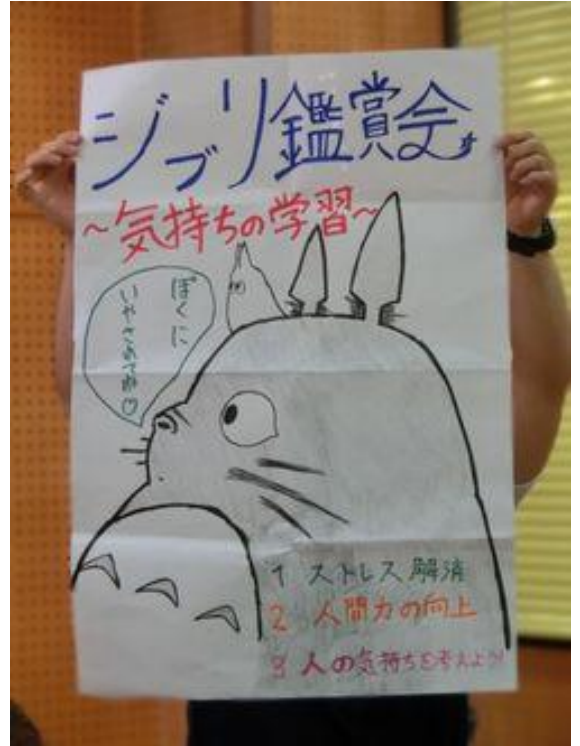 ジブリ鑑賞会
~気持ちの学習~
ぼくに
いやされてね♡
1 ストレス解消
2 人間力の向上
3 人の気持ちを考えよう!